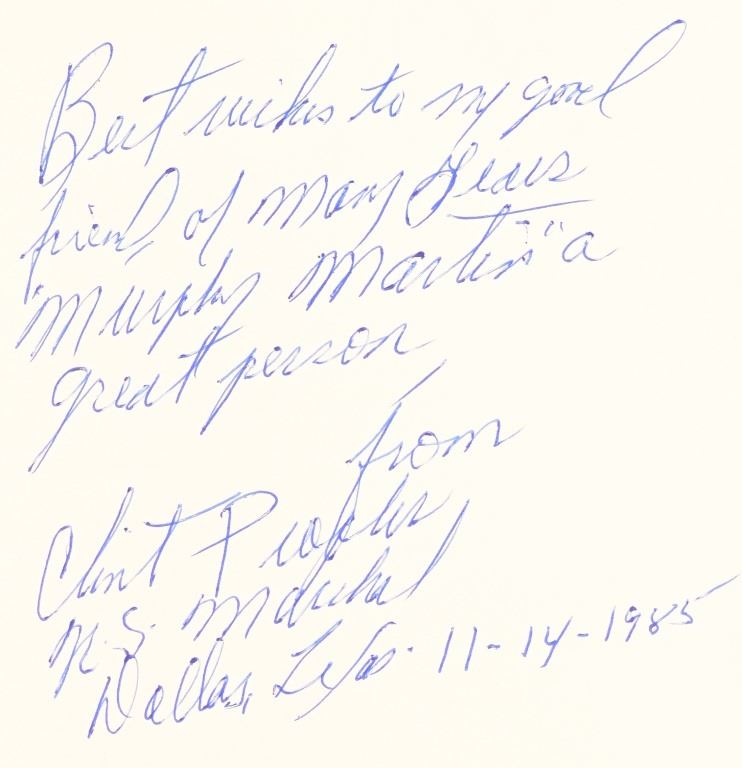 Best wishes to my good
friend, of many years
"Murphy Martin" a
great person
from
Clint Peoples
U.S. Marshal
Dallas, Texas. 11-14-1985